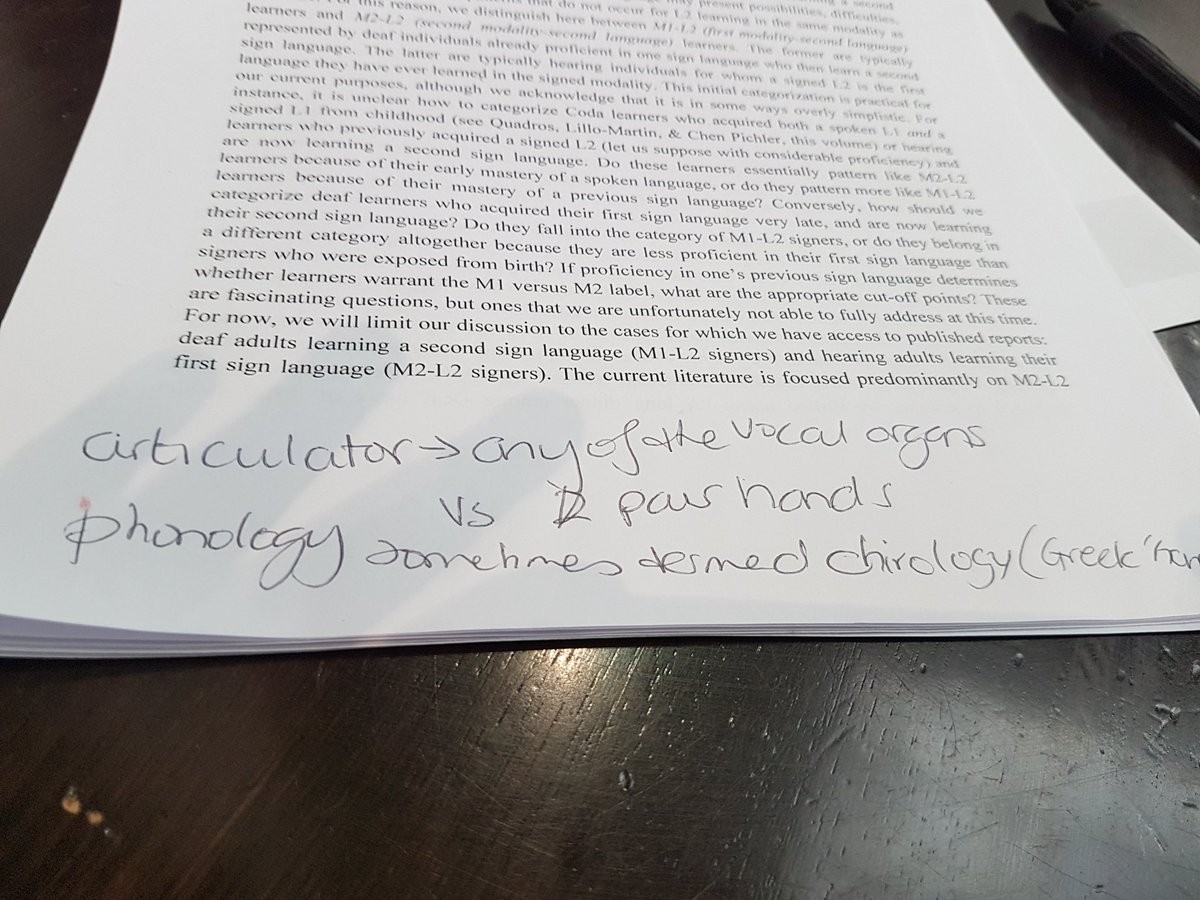 this reason, we distinguish here between M1-L2 (first modality-second language)
learners and M2-L2 (second modality-second language) learners. The former are typically
represented by deaf individuals already proficient in one sign language who then learn a second
sign language. The latter are typically hearing individuals for whom a signed L2 is the first
language they have ever learned in the signed modality. This initial categorization is practical for
our current purposes, although we acknowledge that it is in some ways overly simplistic. For
instance, it is unclear how to categorize Coda learners who acquired both a spoken L1 and a
signed L1 from childhood (see Quadros, Lillo-Martin, & Chen Pichler, this volume) or hearing
learners who previously acquired a signed L2 (let us suppose with considerable proficiency) and
are now learning a second sign language. Do these learners essentially pattern like M2-L2
learners because of their early mastery of a spoken language, or do they pattern more like M1-L2
learners because of their mastery of a previous sign language? Conversely, how should we
categorize deaf learners who acquired their first sign language very late, and are now learning
their second sign language? Do they fall into the category of M1-L2 signers, or do they belong in
a different category altogether because they are less proficient in their first sign language than
signers who were exposed from birth? If proficiency in one's previous sign language determines
whether learners warrant the M1 versus M2 label, what are the appropriate cut-off points? These
are fascinating questions, but ones that we are unfortunately not able to fully address at this time.
For now, we will limit our discussion to the cases for which we have access to published reports:
deaf adults learning a second sign language (M1-L2 signers) and hearing adults learning their
first sign language (M2-L2 signers). The current literature is focused predominantly on M2-L2
articulator → any of the vocal organs
vs pair hands
phonology sometimes termed chirology (Greek 'han